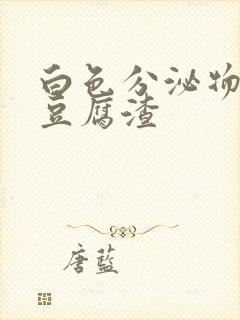 白色分泌物
豆腐渣
唐蓝